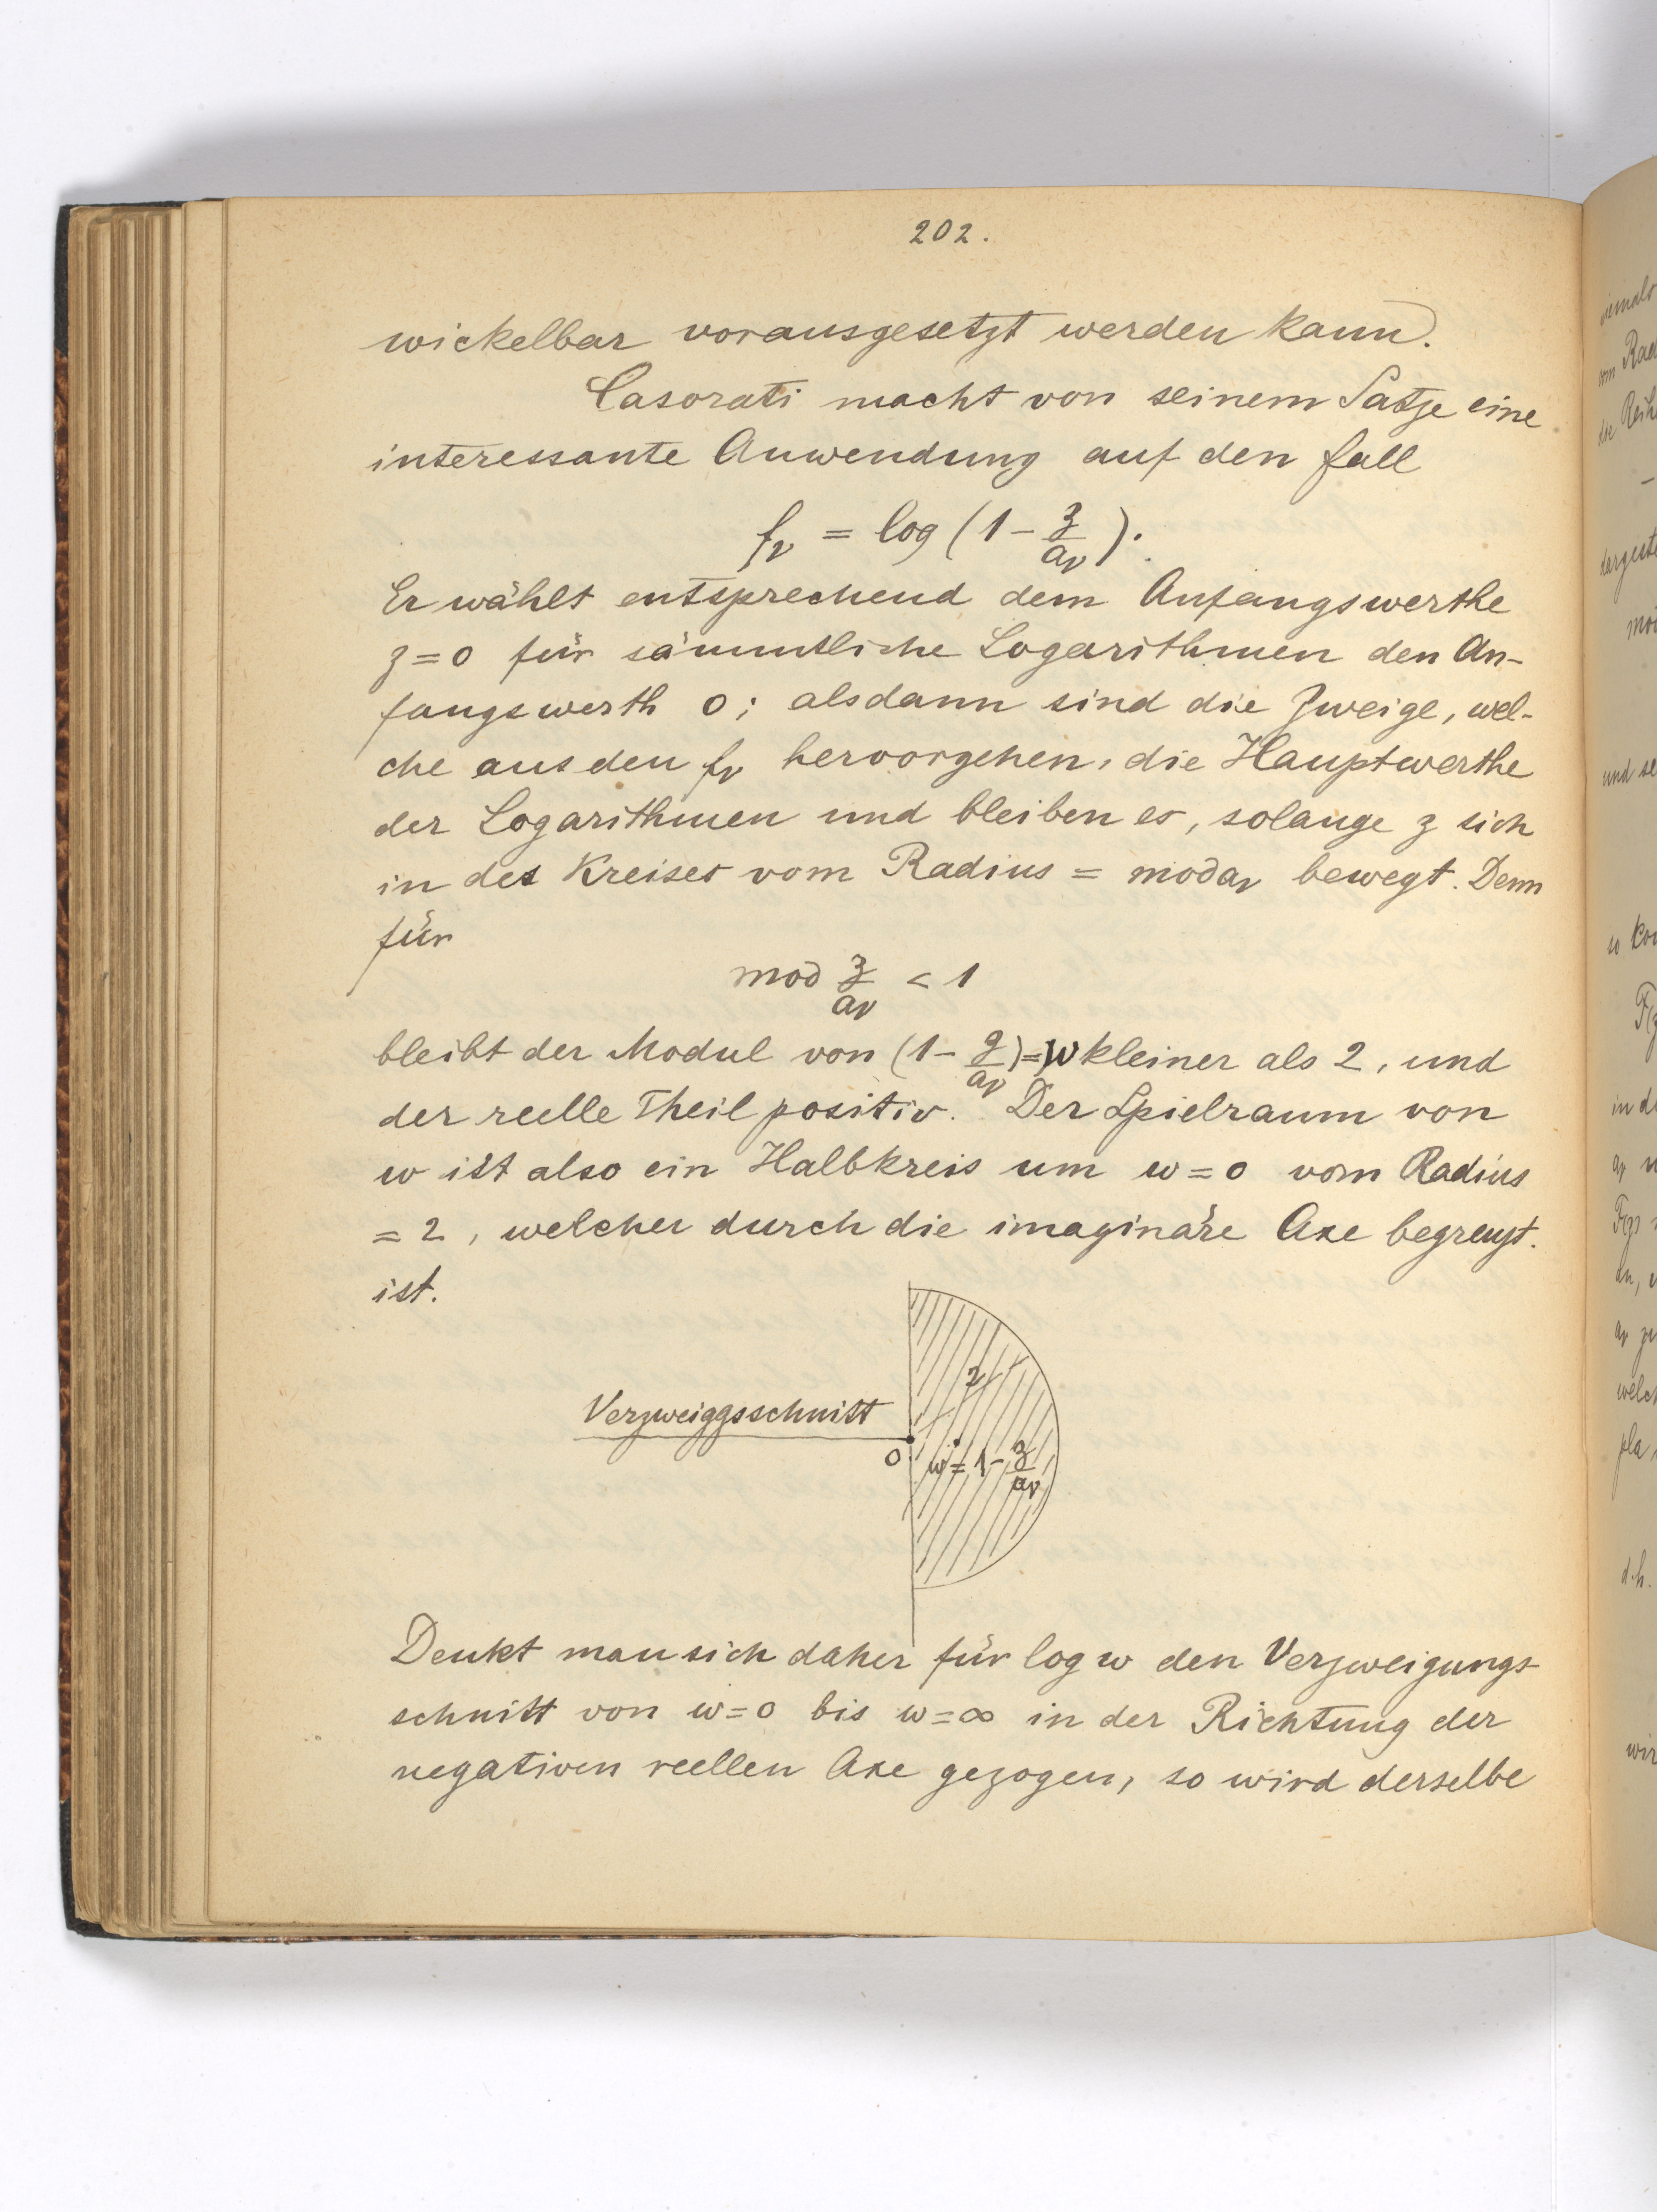 202.
wickelbar vorausgesetzt werden kann.
Casorati macht von seinem Satze eine
interessante Anwendung auf den Fall
f_ν = log (1 - z/a_ν).
Er wählt entsprechend dem Anfangswerthe
z = 0 für sämmtliche Logarithmen den An-
fangswerth 0; alsdann sind die Zweige, wel-
che aus den f_ν hervorgehen, die Hauptwerthe
der Logarithmen und bleiben es, solange z sich
in des Kreises vom Radius = mod a_ν bewegt. Denn
für
mod z/a_ν < 1
bleibt der Modul von (1 - z/a_ν) = w kleiner als 2, und
der reelle Theil positiv. Der Spielraum von
w ist also ein Halbkreis um w = 0 vom Radius
= 2, welcher durch die imaginäre Axe begrenzt
ist.
2
Verzweiggsschnitt
0 w = 1 - z/a_ν
Denkt man sich daher für log w den Verzweigungs-
schnitt von w = 0 bis w = ∞ in der Richtung der
negativen reellen Axe gezogen, so wird derselbe